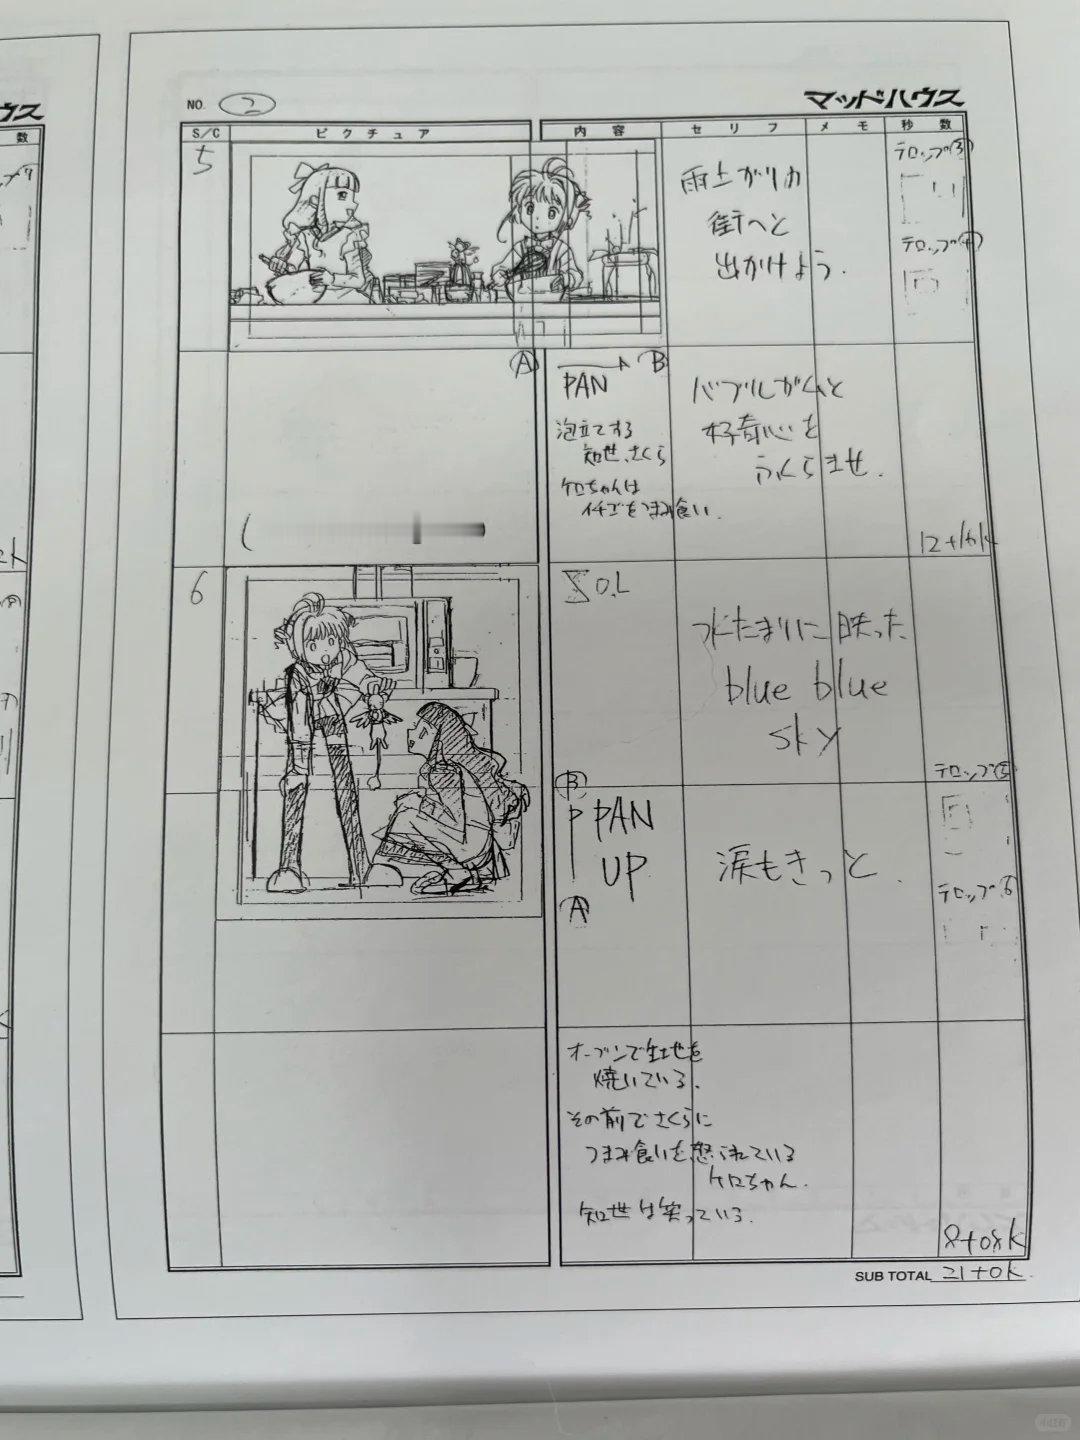 NO. 2
マッドハウス
S/C ピクチュア 内容 セリフ メモ 秒数
5
雨上がりの
街へと
出かけよう.
テロップ③
テロップ④
A → B
PAN
泡立てする
知世、さくら
ケロちゃんは
イチゴをつまみ食い.
バブルガムと
好奇心を
ふくらませ.
6
O.L
水たまりに映った
blue blue
sky
テロップ⑤
B
PAN
UP
A
涙もきっと.
テロップ⑥
オーブンで生地を
焼いている.
その前でさくらに
つまみ食いを怒られている
ケロちゃん.
知世は笑っている.
8+08K
SUB TOTAL 21+0K.
ウス
数